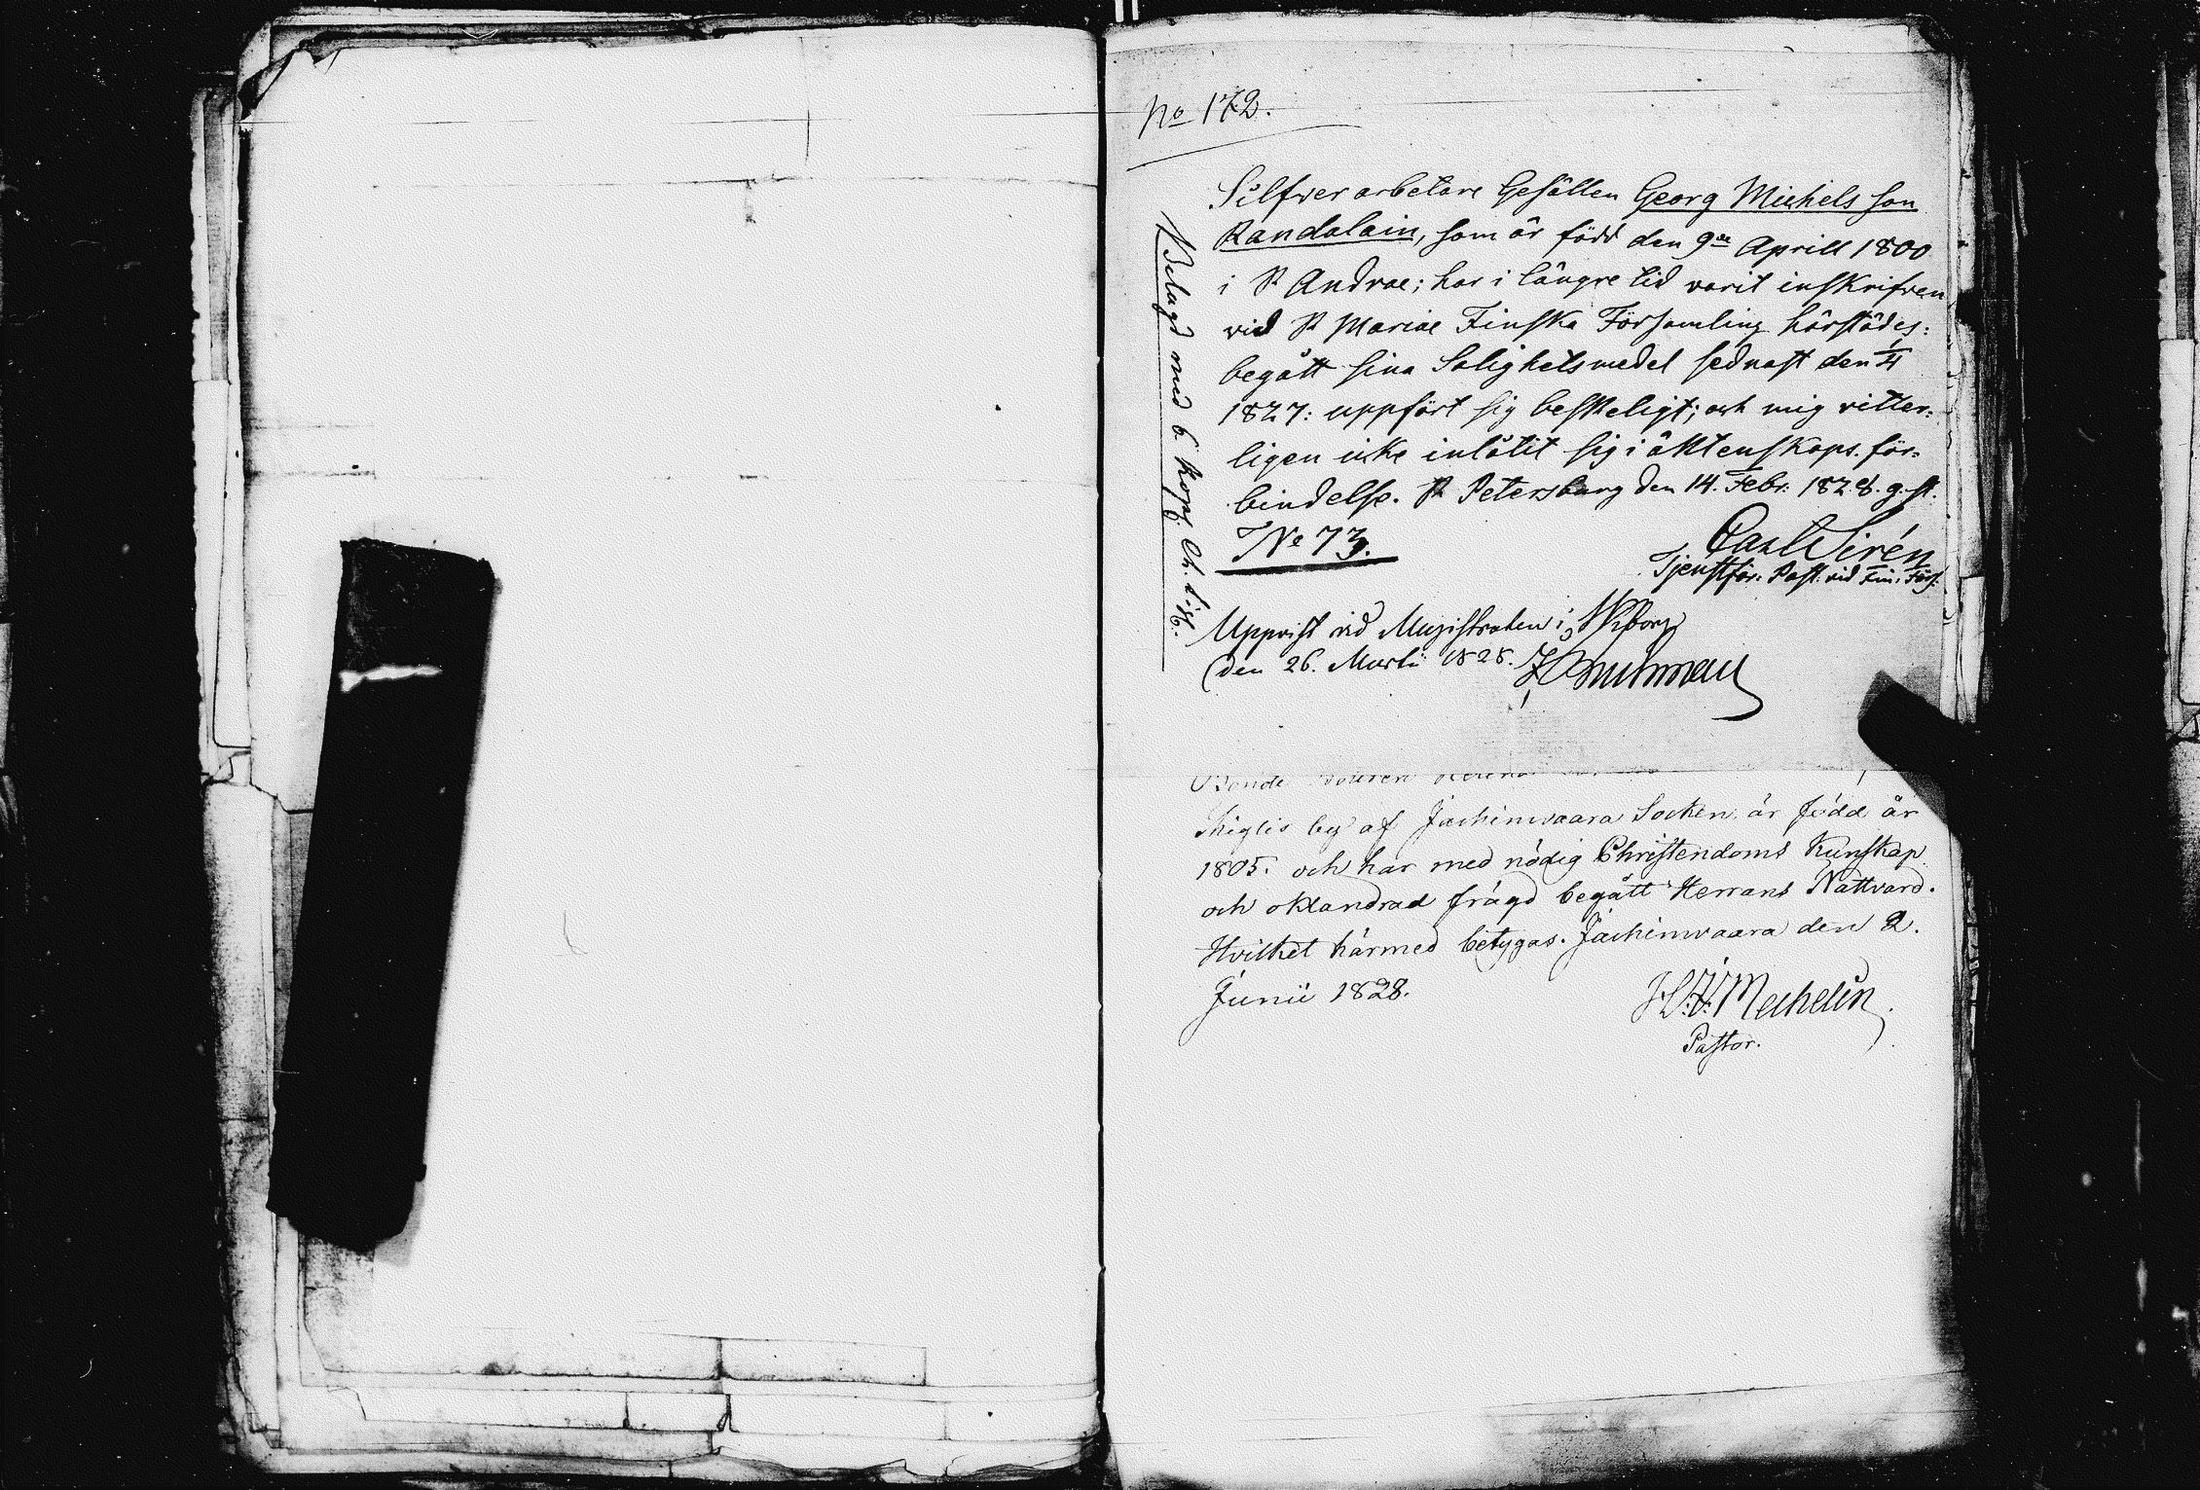 No 172.
Silfwerarbetare Gesällen Georg Michels son
Randalain, som är född den 9de Aprill 1800
i St Andrae; har i längre tid varit inskrifwen
vid St Mariae Finska Församling härstädes:
begått sina Salighetsmedel sednast den
1827: uppfört sig beskeligt; och mig vitter-
ligen icke inlåtit sig i äktenskaps för-
bindelse. St Petersburg den 14. Febr: 1828. g. st.
No 73.
Carl Sirén
Tjenstför: Past: vid Fin: Förs:
Belagd med 6 Kop
Uppvist vid Magistraten i Wiborg
den 26. Martii 1828.
Bonde
by af Jachimvaara Socken är född år
1805. och har med nödig Christendoms Kunskap
och oklandrad frägd begått Herrans Nattvard.
Hvilket härmed betygas. Jachimvaara den 2.
Junii 1828.
Mechelin
Pastor.